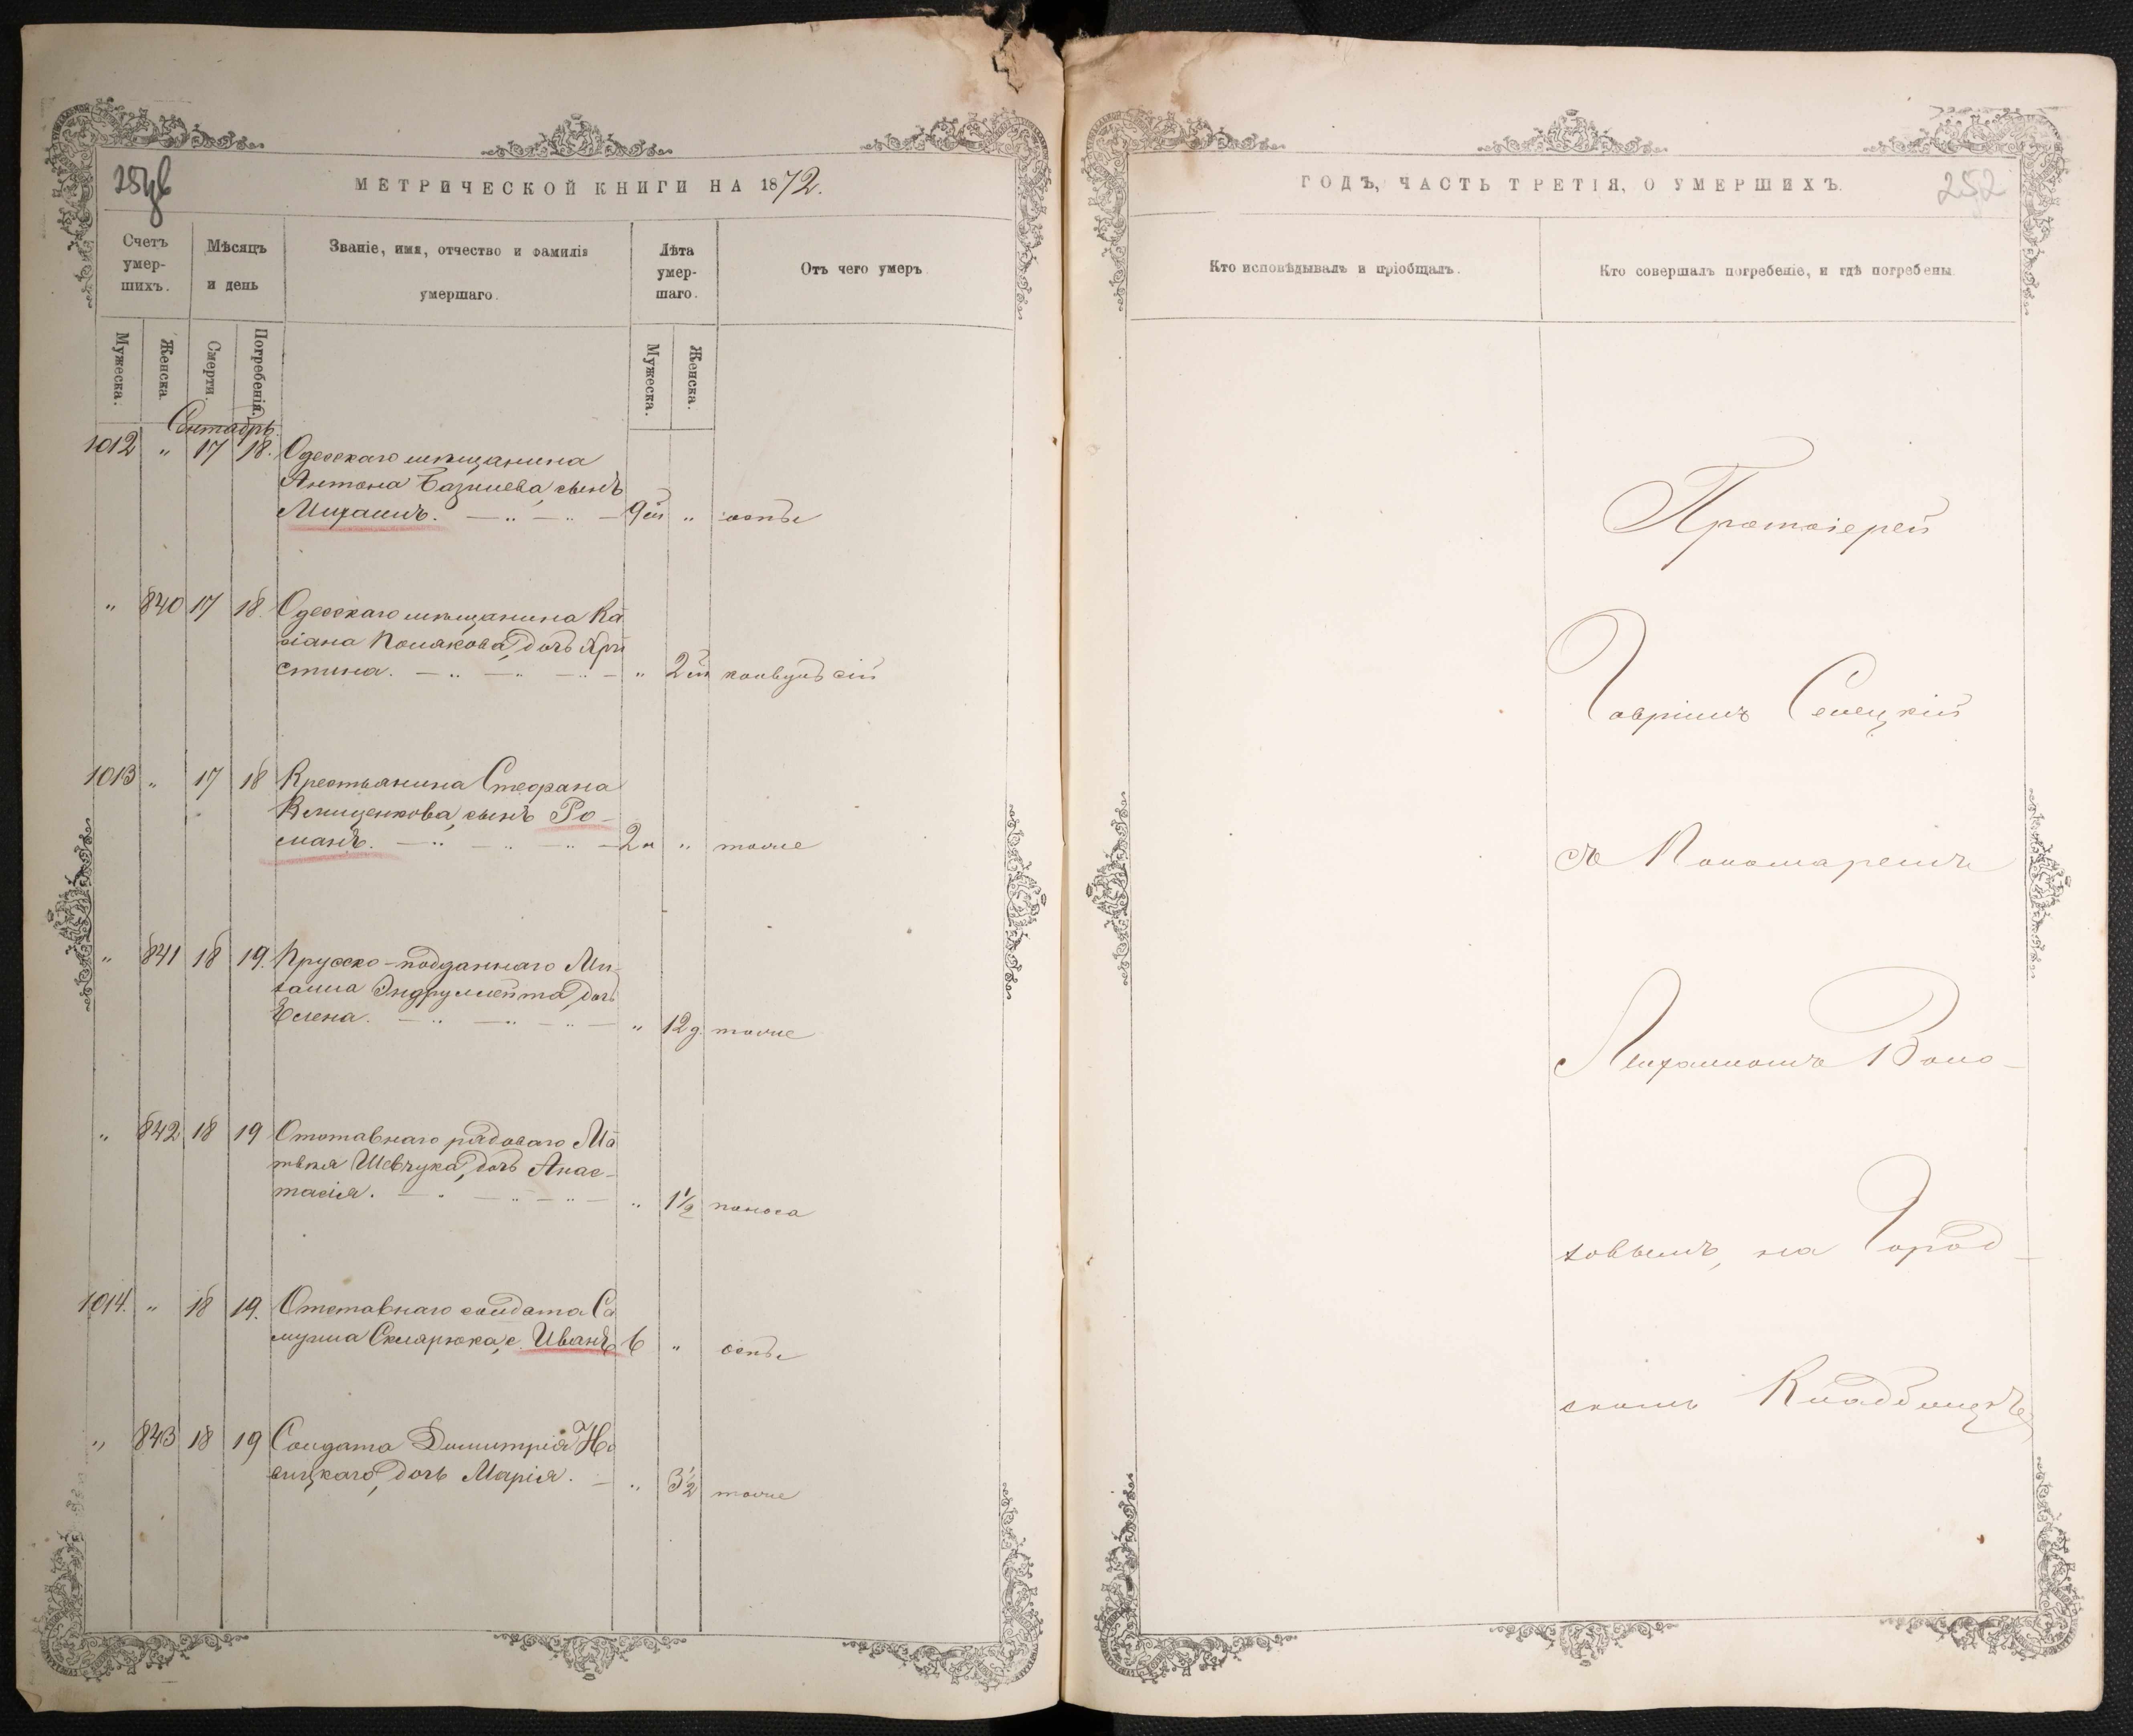 МЕТРИЧЕСКОЙ КНИГИ НА 1872.
Счетъ умер-шихъ.
Мѣсяцъ и день
Званіе, имя, отчество и фамилія умершаго.
Лѣта умер-шаго.
Отъ чего умеръ.
Мужеска.
Женска.
Смерти.
Погребенія.
Мужеска.
Женска.
Сентябрь.
1012 " 17 18. Одесскаго мѣщанина
Антона Базилева, сынъ
Михаилъ. 9 " оспы
" 840 17 18. Одесскаго мѣщанина Ка
сіана Полякова, дочь Хри
стина. " 2 конвульсій
1013 " 17 18 Крестьянина Стефана
Клищенкова, сынъ Ро-
манъ. 2 " тоже
" 841 18 19. Прусско-подданнаго Ми-
хаила Эндрулейта, дочь
Елена. " 12 д. тоже
" 842 18 19 Отставнаго рядоваго Ма
твея Шевчука, дочь Анас-
тасія. " 1½ поноса
1014. " 18 19. Отставнаго солдата Са
муила Склярюка, с. Иванъ 6 " оспы
" 843 18 19 Солдата Димитрія Но
вицкаго, дочь Марія. " 3½ тоже
ГОДЪ, ЧАСТЬ ТРЕТІЯ, О УМЕРШИХЪ.
252
Кто исповѣдывалъ и пріобщалъ.
Кто совершалъ погребеніе, и гдѣ погребены.
Протоіерей
Гавріилъ Селецкій
съ Пономаремъ
Михаиломъ Воло-
ховымъ, на Город-
скомъ Кладбищѣ